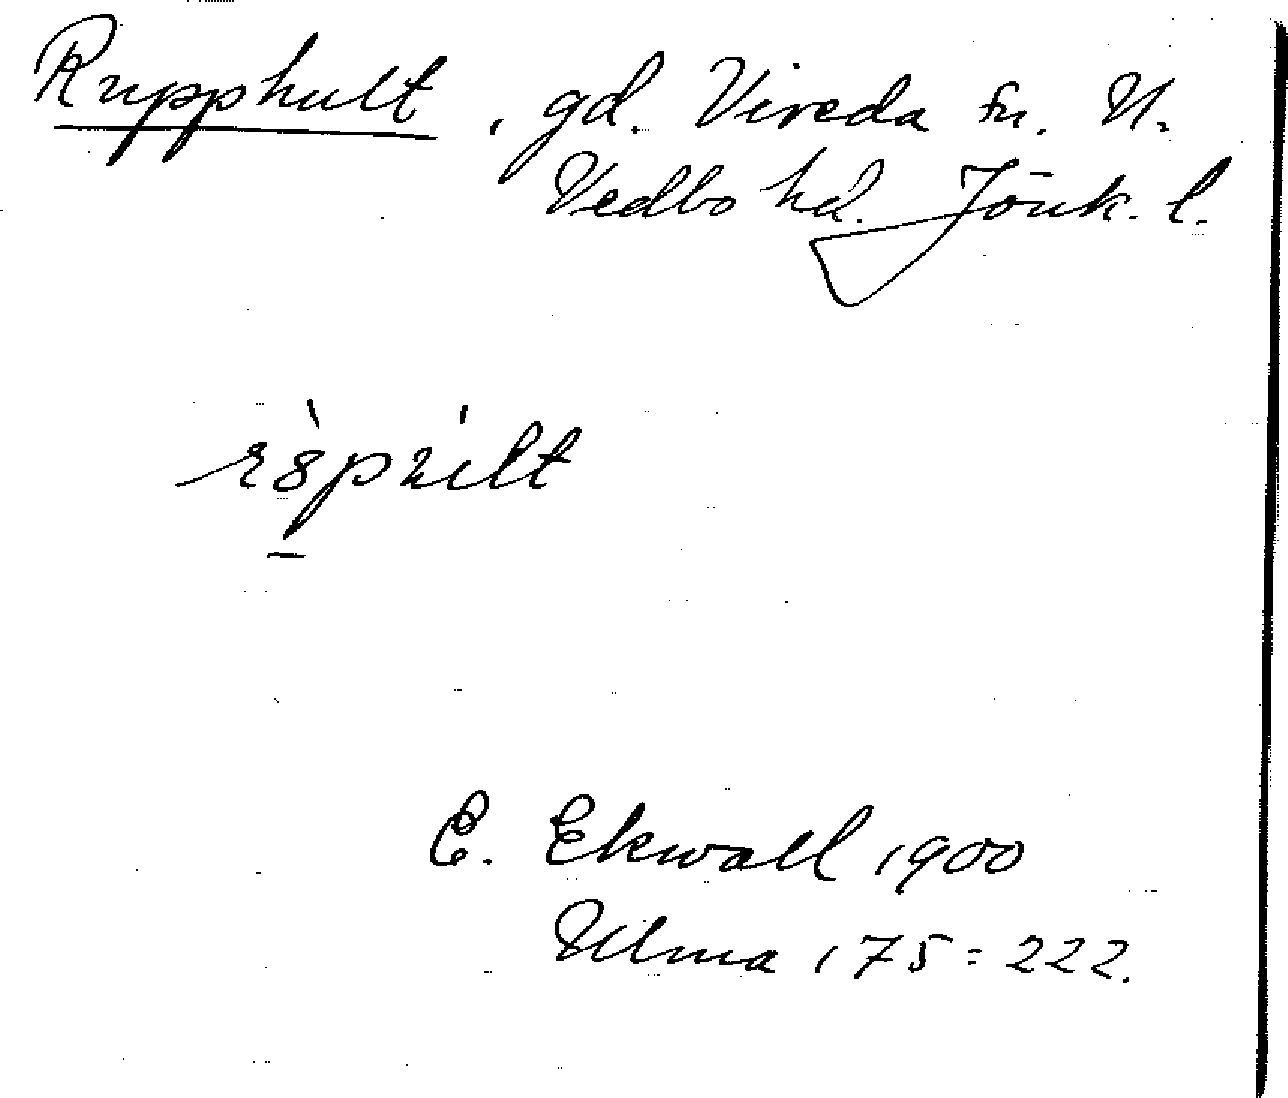 Rupphult, gd. Vireda sn. N.
Vedbo hd. Jönk. l.
E. Ekwall 1900
Ulma 175:222.